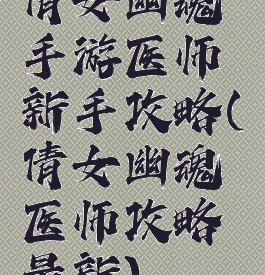 倩女幽魂
手游医师
新手攻略(
倩女幽魂
医师攻略
最新)